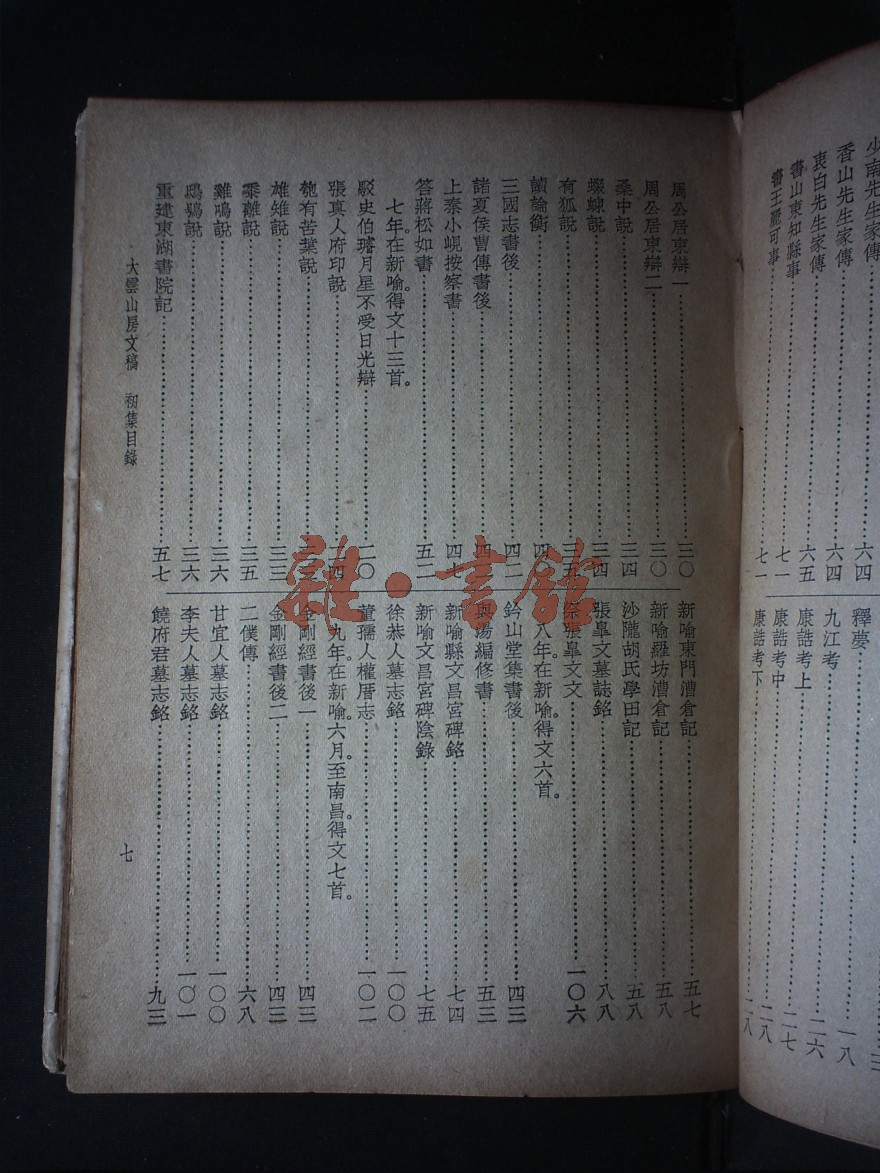 少南先生家傳
香山先生家傳……六四
衷白先生家傳……六五
書山東知縣事……七一
書王麗可事……七一
釋夢……一八
九江考……二六
康誥考上……二七
康誥考中……二八
康誥考下……二八
周公居東辯一……三〇
周公居東辯二……三〇
桑中說……三四
蝃蝀說……三四
有狐說……三五
讀論衡
三國志書後……四二
諸夏侯曹傳書後
上秦小峴按察書……四七
答蔣松如書……五二
七年在新喻。得文十三首。
駁史伯璿月星不受日光辯……二〇
張真人府印說
匏有苦葉說
雄雉說……三三
黍離說……三五
雞鳴說……三六
鴟鴞說……三六
重建東湖書院記……五七
新喻東門漕倉記……五七
新喻羅坊漕倉記……五八
沙隴胡氏學田記……五八
張臯文墓誌銘……八八
祭張臯文文……一〇六
八年。在新喻。得文六首。
鈐山堂集書後……四三
與湯編修書……五三
新喻縣文昌宮碑銘……七四
新喻文昌宮碑陰錄……七五
徐恭人墓志銘……一〇〇
董孺人權厝志……一〇二
九年。在新喻。六月。至南昌。得文七首。
金剛經書後一……四三
金剛經書後二……四三
二僕傳……六八
甘宜人墓志銘……一〇〇
李夫人墓志銘……一〇一
饒府君墓志銘……九三
大雲山房文稿 初集目錄
七
雜·書館